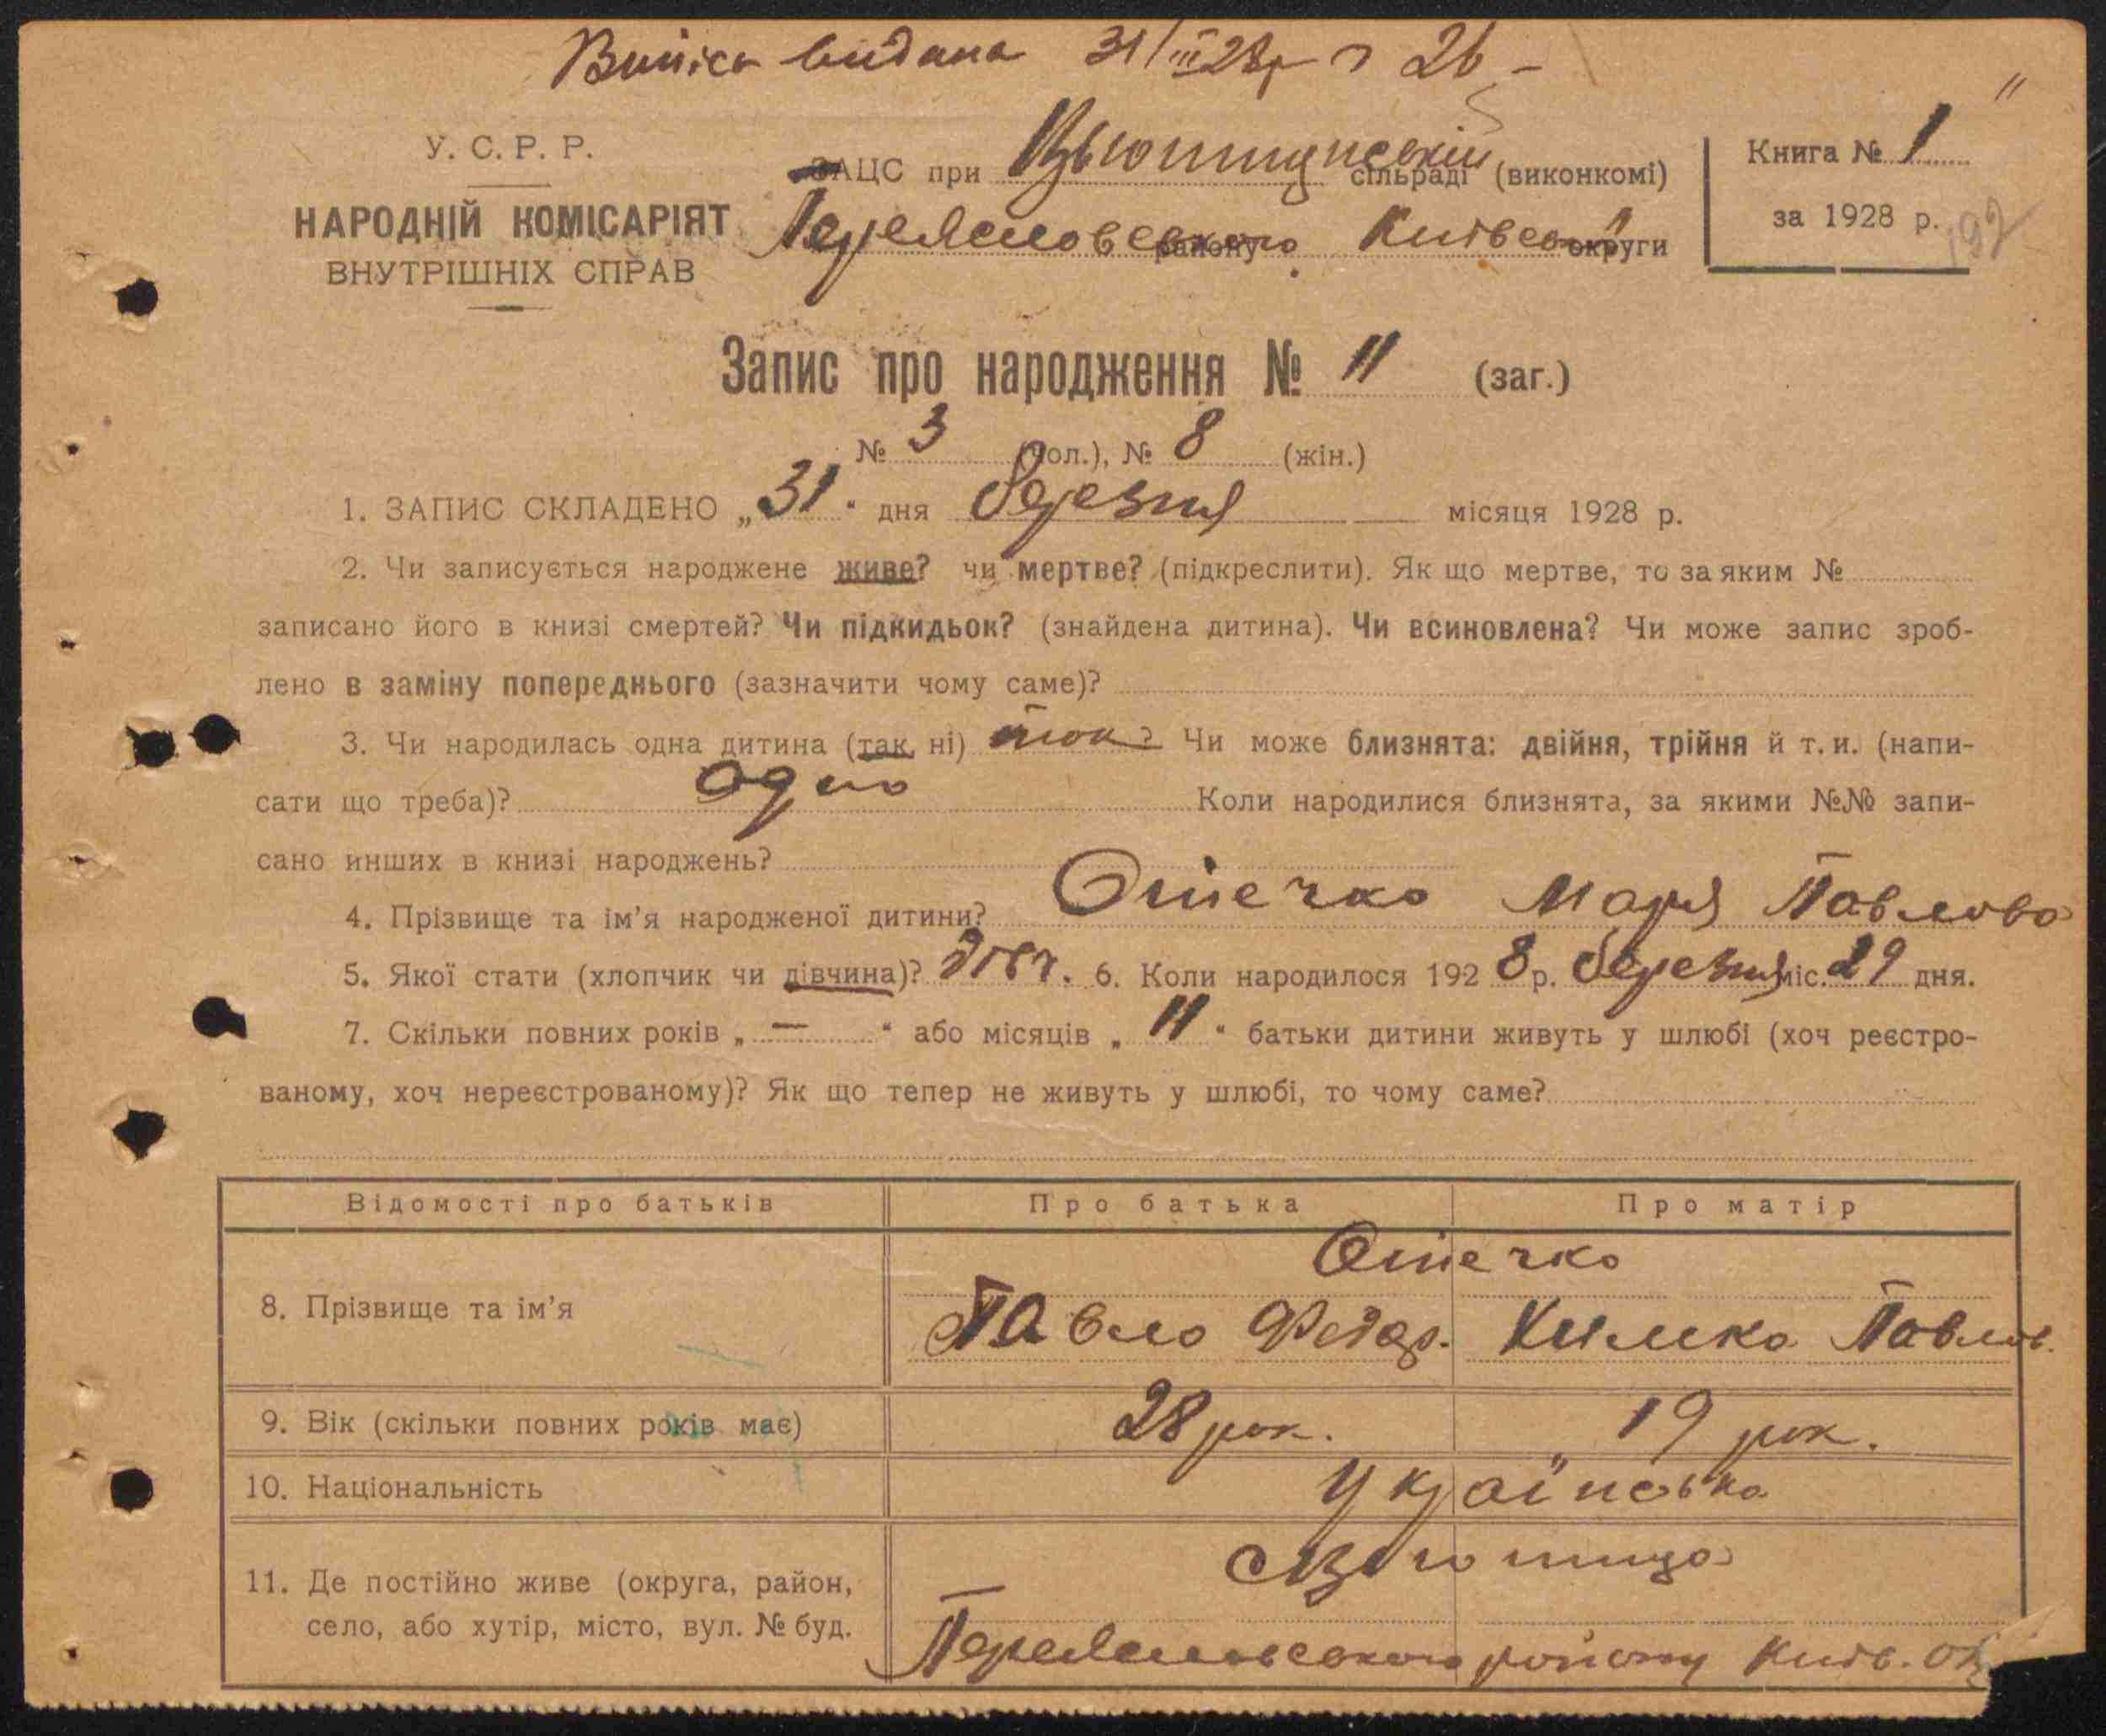 Виписа видана 31/III 28р 26 –
У. С. Р. Р.
НАРОДНІЙ КОМІСАРІЯТ
ВНУТРІШНІХ СПРАВ
ЗАЦС при сільраді (виконкомі)
Переяславського району Київської округи
Книга № 1
за 1928 р.
192
Запис про народження № 11 (заг.)
№ 3 (чол.), № 8 (жін.)
1. ЗАПИС СКЛАДЕНО „31“ дня березня місяця 1928 р.
2. Чи записується народжене живе? чи мертве? (підкреслити). Як що мертве, то за яким №
записано його в книзі смертей? Чи підкидьок? (знайдена дитина). Чи всиновлена? Чи може запис зроб-
лено в заміну попереднього (зазначити чому саме)?
3. Чи народилась одна дитина (так, ні) так Чи може близнята: двійня, трійня й т. и. (напи-
сати що треба)? одно Коли народилися близнята, за якими №№ запи-
сано инших в книзі народжень?
4. Прізвище та ім’я народженої дитини? Отечко Марія Павлова
5. Якої стати (хлопчик чи дівчина)? дівч. 6. Коли народилося 1928 р. березня міс. 29 дня.
7. Скільки повних років „ — “ або місяців „ 11 “ батьки дитини живуть у шлюбі (хоч реєстро-
ваному, хоч нереєстрованому)? Як що тепер не живуть у шлюбі, то чому саме?
Відомості про батьків Про батька Про матір
Отечко
8. Прізвище та ім’я Павло Федор. Килика Павлов.
9. Вік (скільки повних років має) 28 рок. 19 рок.
10. Національність Українська
11. Де постійно живе (округа, район,
село, або хутір, місто, вул. № буд. Переяславського району Київ. ок